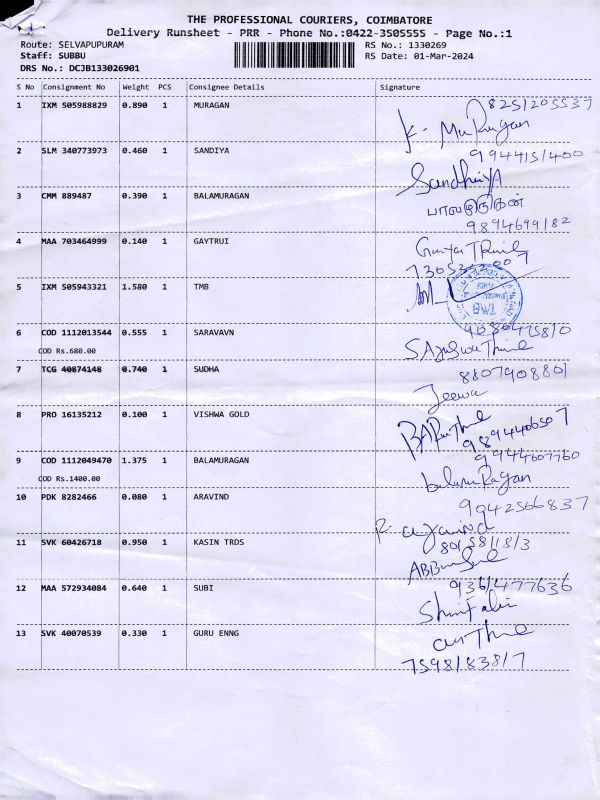 THE PROFESSIONAL COURIERS, COIMBATORE
Delivery Runsheet - PRR - Phone No.:0422-3505555 - Page No.:1
Route: SELVAPUPURAM RS No.: 1330269
Staff: SUBBU RS Date: 01-Mar-2024
DRS No.: DCJB133026901
S No Consignment No Weight PCS Consignee Details Signature
1 IXM 505988829 0.890 1 MURAGAN 8251205537
K. Murugan
2 SLM 340773973 0.460 1 SANDIYA 9944151400
Sandhiya
3 CMM 889487 0.390 1 BALAMURAGAN பாலமுருகன்
9894699182
4 MAA 703464999 0.140 1 GAYTRUI
5 IXM 505943321 1.580 1 TMB
TMB
6 COD 1112013544 0.555 1 SARAVAVN
COD Rs.680.00
7 TCG 40874148 0.740 1 SUDHA 8807908801
Jeewa
8 PRO 16135212 0.100 1 VISHWA GOLD
9894406507
9 COD 1112049470 1.375 1 BALAMURAGAN 9944607760
COD Rs.1400.00 balamuRagan
10 PDK 8282466 0.080 1 ARAVIND 9942566837
11 SVK 60426718 0.950 1 KASIN TRDS
12 MAA 572934084 0.640 1 SUBI 9361477636
13 SVK 40070539 0.330 1 GURU ENNG
7598183817